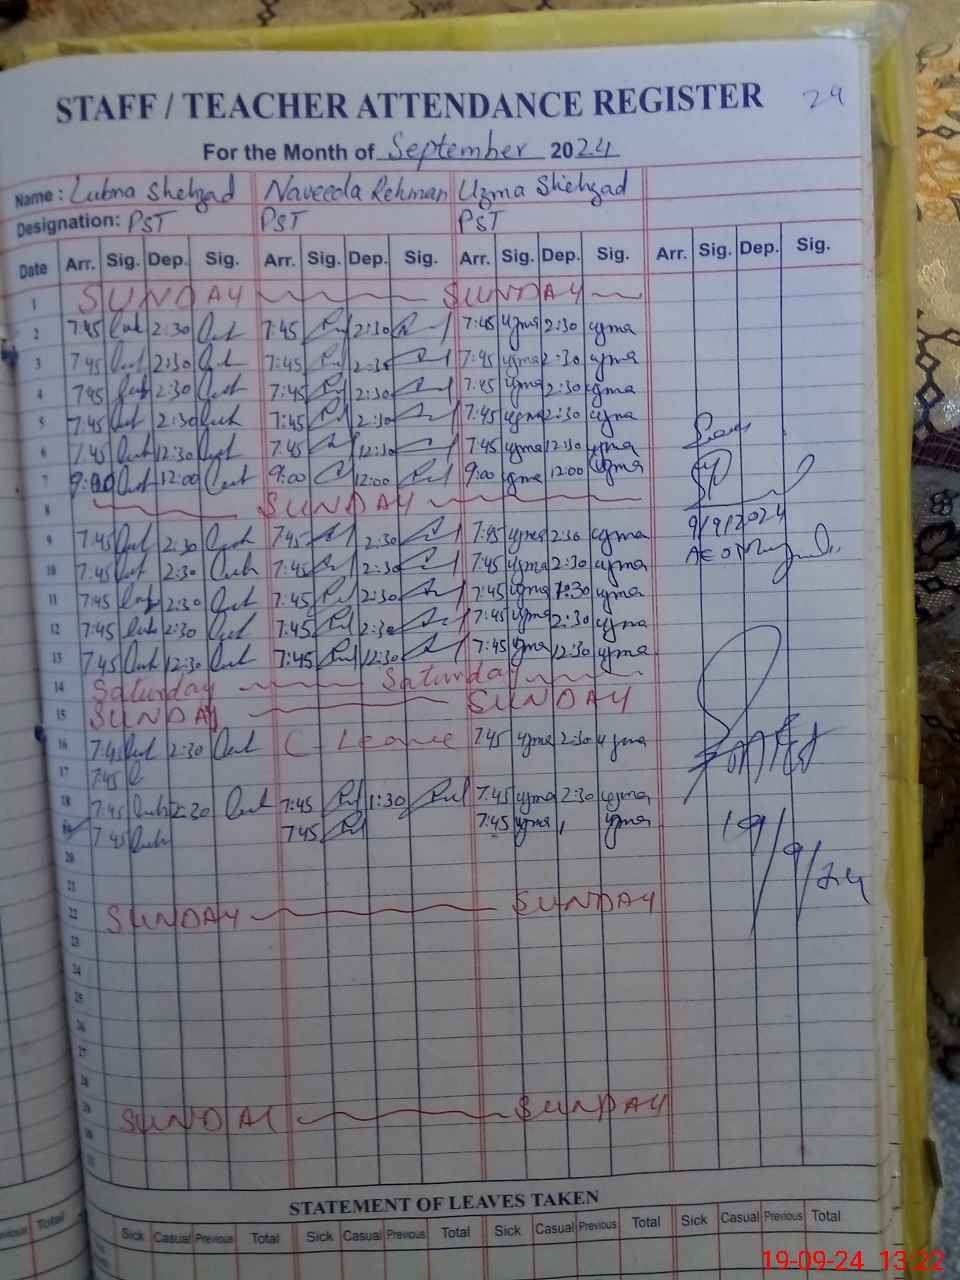 STAFF / TEACHER ATTENDANCE REGISTER 29
For the Month of September 2024
Name : Lubna Shehzad Naveeda Rehman Uzma Shehzad
Designation: PST PST PST
Date Arr. Sig. Dep. Sig. Arr. Sig. Dep. Sig. Arr. Sig. Dep. Sig. Arr. Sig. Dep. Sig.
1 SUNDAY SUNDAY
2 7:45 2:30 7:45 2:30 7:45 uzma 2:30 uzma
3 7:45 2:30 7:45 2:30 7:45 uzma 2:30 uzma
4 7:45 2:30 7:45 2:30 7:45 uzma 2:30 uzma
5 7:45 2:30 7:45 2:30 7:45 uzma 2:30 uzma
6 7:45 12:30 7:45 12:30 7:45 uzma 12:30 uzma
7 9:00 12:00 9:00 12:00 9:00 uzma 12:00 uzma
8 SUNDAY
9/9/2024
9 7:45 2:30 7:45 2:30 7:45 uzma 2:30 uzma
AEO
10 7:45 2:30 7:45 2:30 7:45 uzma 2:30 uzma
11 7:45 2:30 7:45 2:30 7:45 uzma 2:30 uzma
12 7:45 2:30 7:45 2:30 7:45 uzma 2:30 uzma
13 7:45 12:30 7:45 12:30 7:45 uzma 12:30 uzma
14 Saturday Saturday
15 SUNDAY SUNDAY
16 7:45 2:30 C - Leave 7:45 uzma 2:30 uzma
17 7:45
18 7:45 2:30 7:45 1:30 7:45 uzma 2:30 uzma
19 7:45 7:45 7:45 uzma uzma
19/9/24
20
21
22 SUNDAY SUNDAY
23
24
25
26
27
28
29 SUNDAY SUNDAY
30
31
STATEMENT OF LEAVES TAKEN
Previous Total Sick Casual Previous Total Sick Casual Previous Total Sick Casual Previous Total Sick Casual Previous Total
19-09-24 13:22